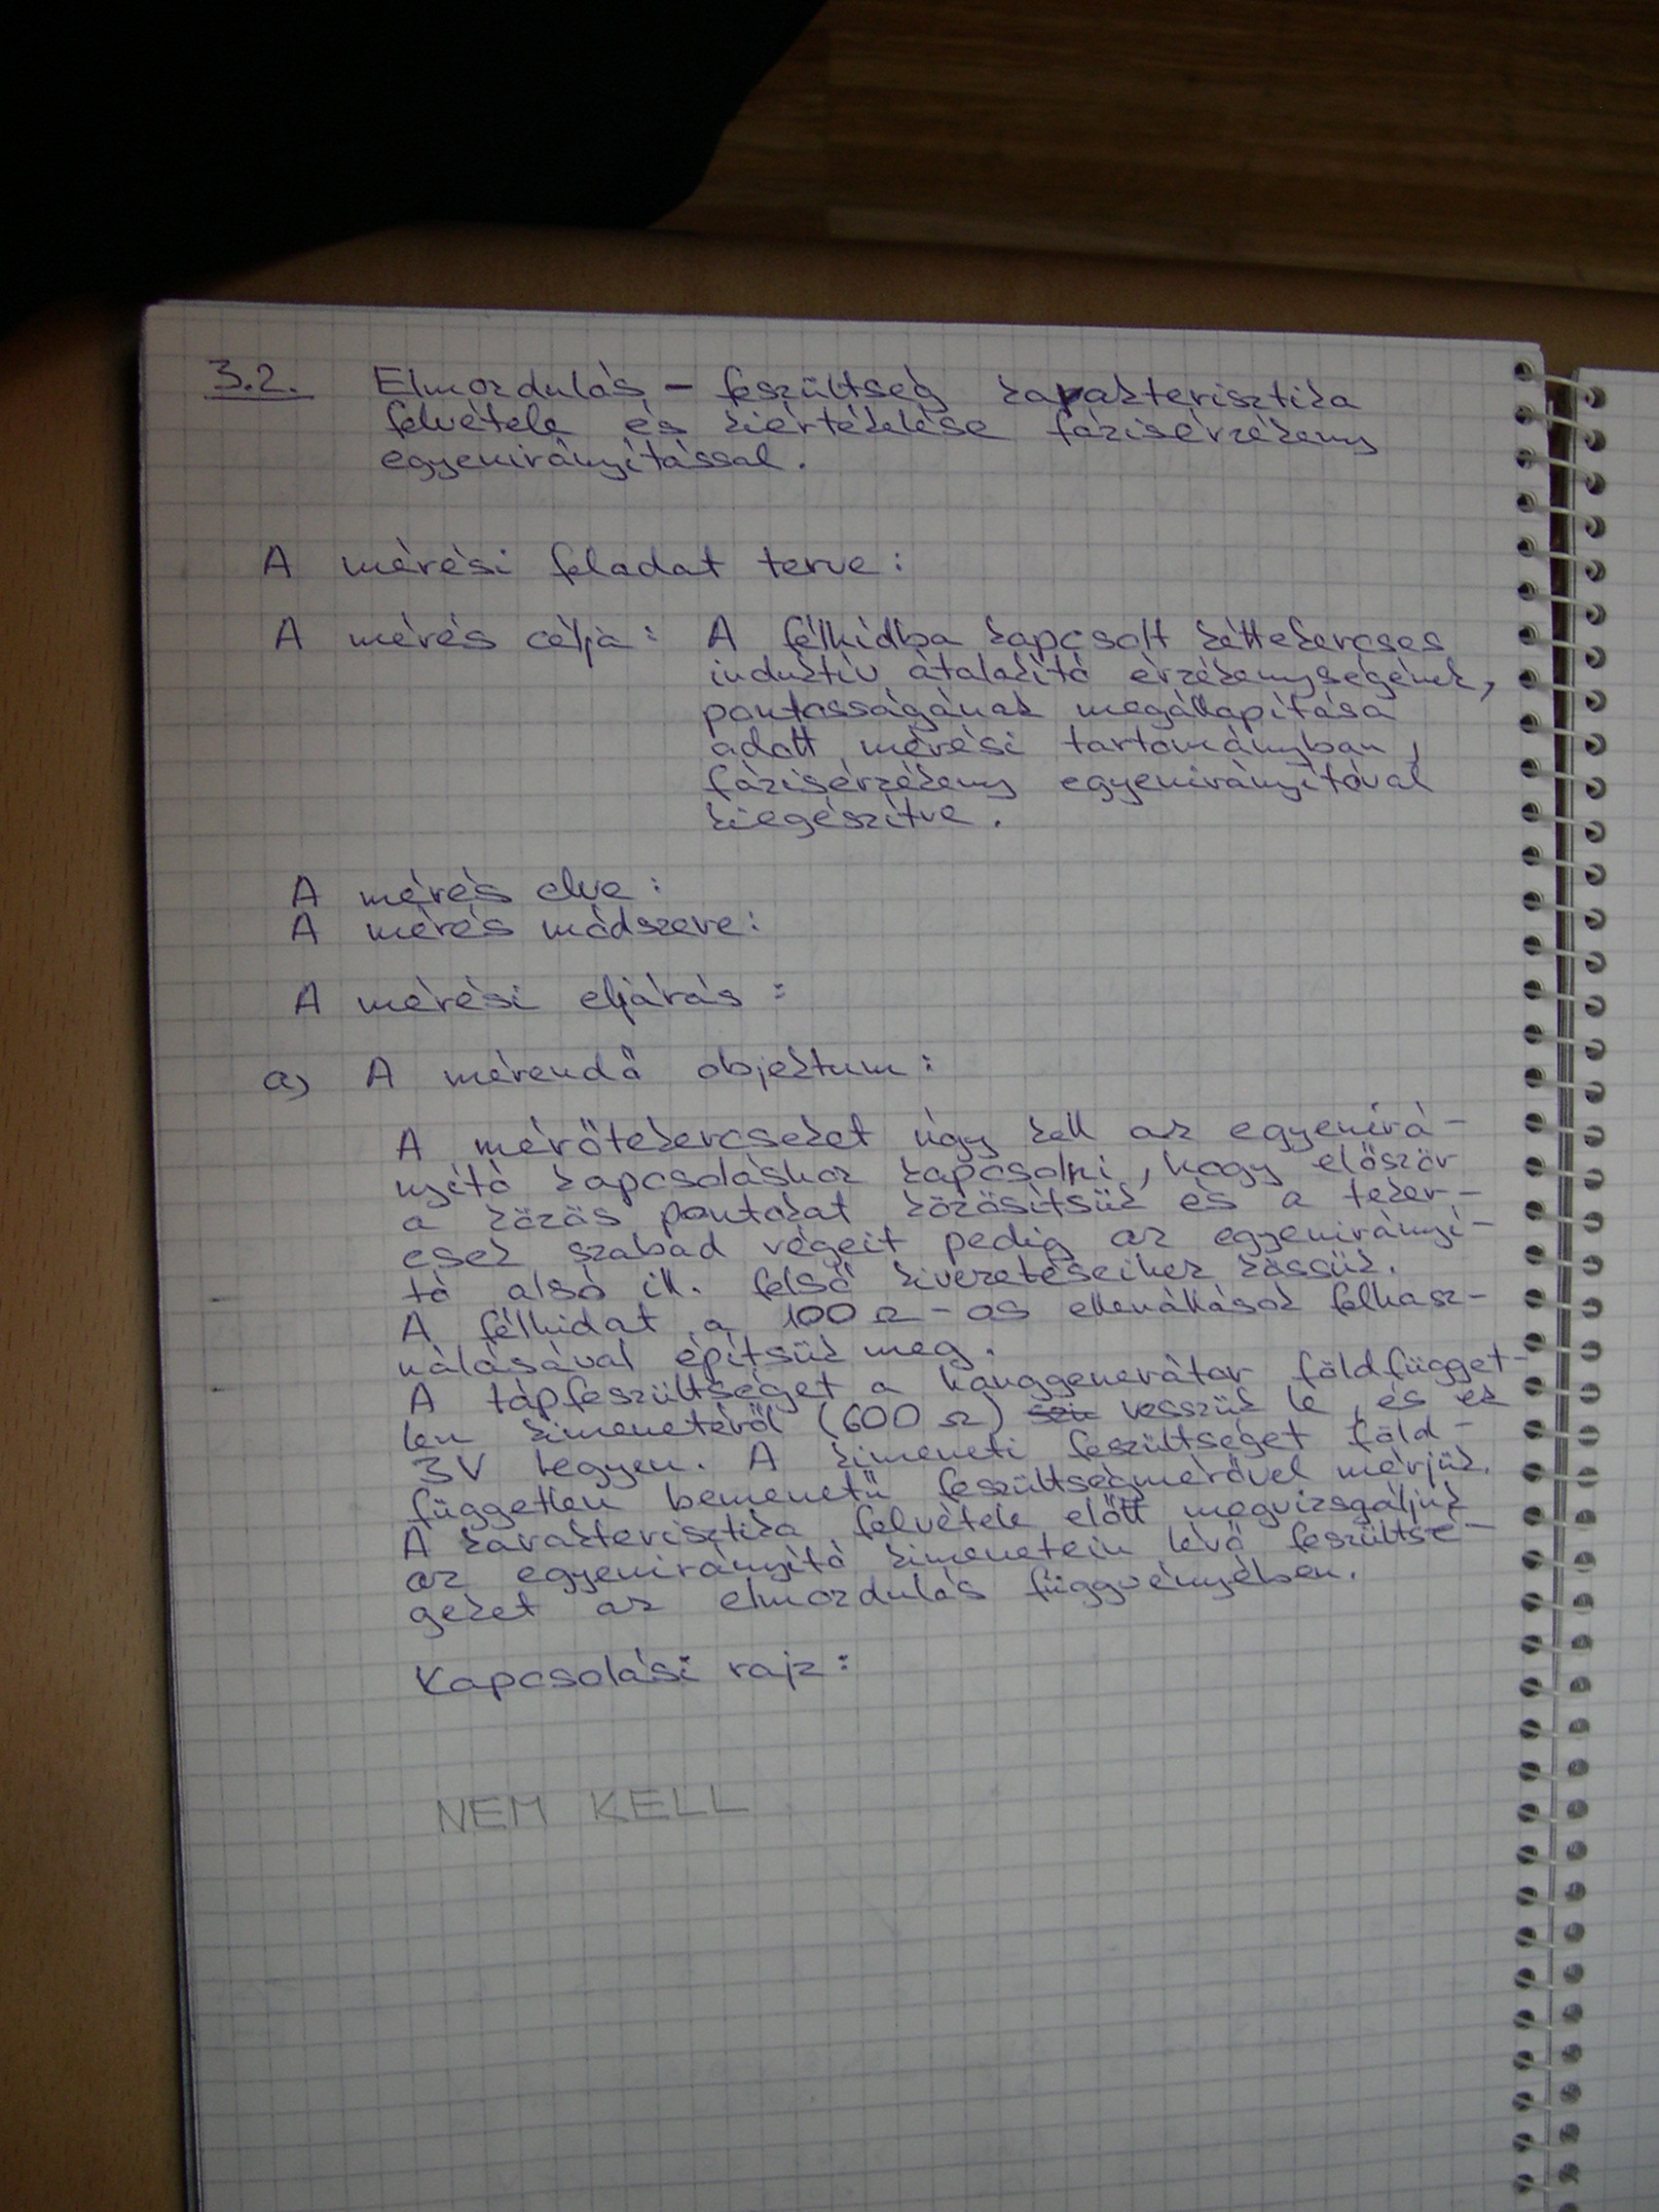 3.2. Elmozdulás - feszültség karakterisztika
felvétele és kiértékelése fázisérzékeny
egyenirányítással.
A mérési feladat terve:
A mérés célja: A félhídba kapcsolt kéttekercses
induktív átalakító érzékenységének,
pontosságának megállapítása
adott mérési tartományban,
fázisérzékeny egyenirányítóval
kiegészítve.
A mérés elve:
A mérés módszere:
A mérési eljárás:
a) A mérendő objektum:
A mérőtekercseket úgy kell az egyenirá-
nyító kapcsoláshoz kapcsolni, hogy először
a közös pontokat közösítsük és a teker-
csek szabad végeit pedig az egyenirányí-
tó alsó ill. felső kivezetéseihez kössük.
A félhidat a 100 Ω-os ellenállások felhasz-
nálásával építsük meg.
A tápfeszültséget a hanggenerátor földfügget-
len kimenetéről (600 Ω) vesszük le, és ez
3V legyen. A kimeneti feszültséget föld-
független bemenetű feszültségmérővel mérjük.
A karakterisztika felvétele előtt megvizsgáljuk
az egyenirányító kimenetein lévő feszültsé-
geket az elmozdulás függvényében.
Kapcsolási rajz:
NEM KELL